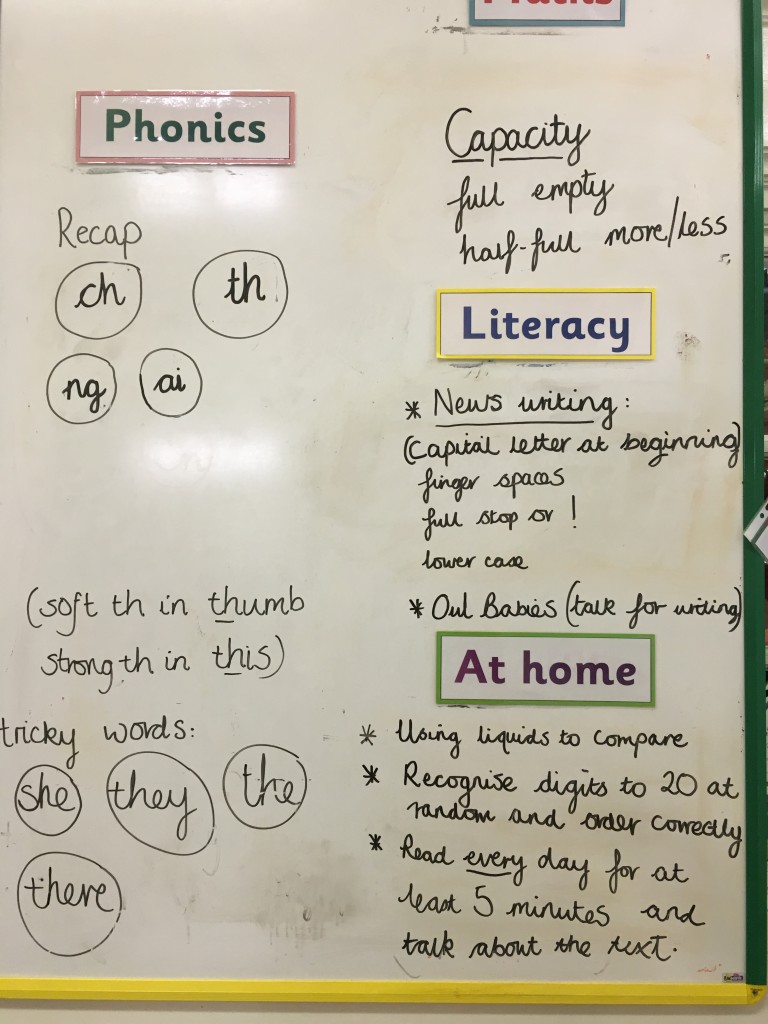 Phonics
Recap
ch th
ng ai
(soft th in thumb
strong th in this)
tricky words:
she they the
there
Capacity
full empty
half-full more/less
Literacy
* News writing:
(Capital letter at beginning)
finger spaces
full stop or !
lower case
* Owl Babies (talk for writing)
At home
* Using liquids to compare
* Recognise digits to 20 at
random and order correctly
* Read every day for at
least 5 minutes and
talk about the text.